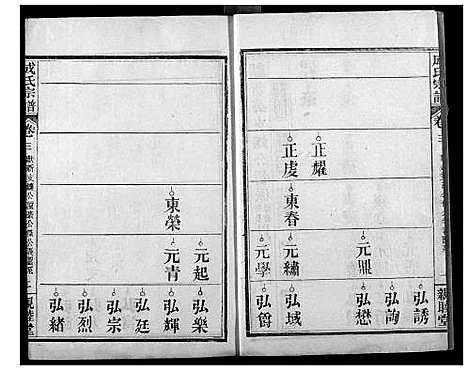 成氏宗譜
卷三
親睦堂
正耀
正虔
東春
元鼎
元繡
元學
弘誘
弘詢
弘懋
弘域
弘爵
東榮
元起
元青
弘樂
弘輝
弘廷
弘宗
弘烈
弘緒
成氏宗譜
卷三
二
親睦堂